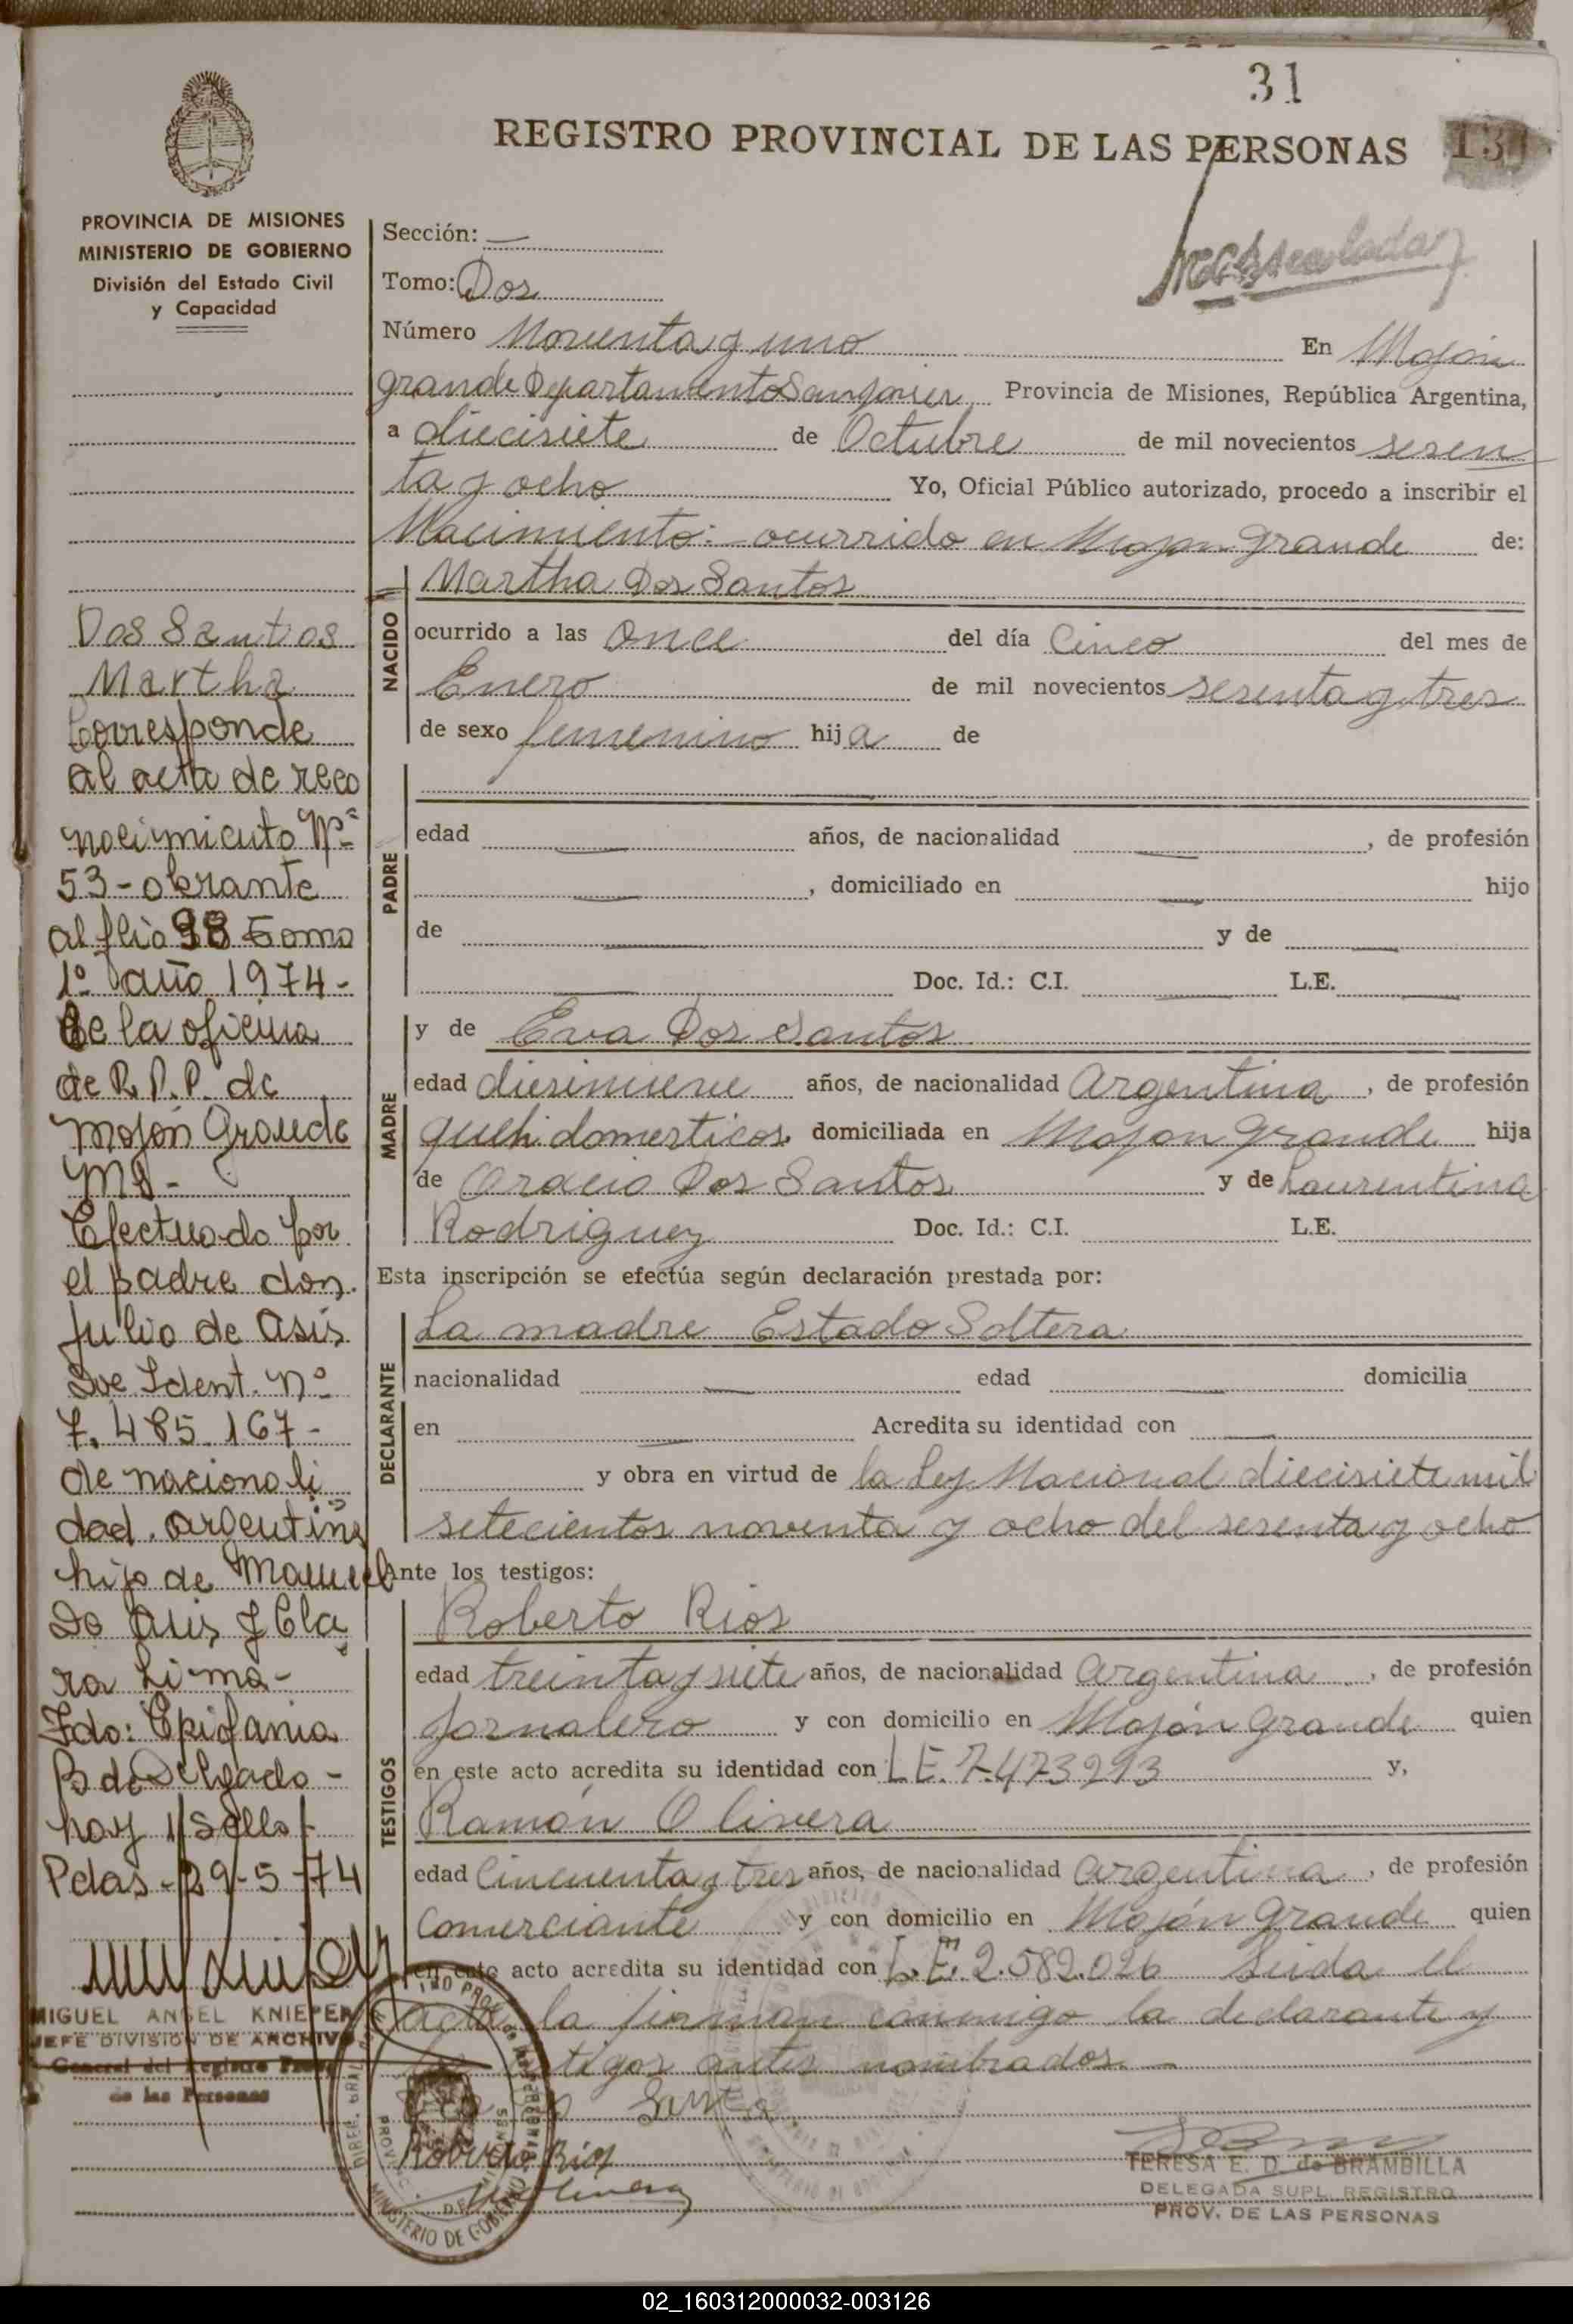 31
REGISTRO PROVINCIAL DE LAS PERSONAS
PROVINCIA DE MISIONES
MINISTERIO DE GOBIERNO
División del Estado Civil
y Capacidad
Dos Santos
Martha
Corresponde
al acta de reco
nocimiento Nº
53-obrante
al flio 98 Tomo
1º año 1974-
de la oficina
de R.P.P. de
Mojón Grande
Ms-
Efectuado por
el padre don
Julio de Asis
Dve Ident. nº
7.485.167-
de nacionali
dad argentina
hijo de Manuel
De Asis y Cla
ra Lima-
Fdo: Epifania
B de Delgado-
hay 1 sello
Pdas-29-5-74
MIGUEL ANGEL KNIEPER
JEFE DIVISION DE ARCHIVO
General del Registro
de las Personas
Sección: —
Tomo: Dos
Número Noventa y uno En Mojón
grande Departamento San Javier Provincia de Misiones, República Argentina,
a diecisiete de Octubre de mil novecientos sesen
ta y ocho Yo, Oficial Público autorizado, procedo a inscribir el
Nacimiento: ocurrido en Mojon grande de:
NACIDO
Martha Dos Santos
ocurrido a las once del día Cinco del mes de
Enero de mil novecientos sesenta y tres
de sexo femenino hija de
PADRE
edad — años, de nacionalidad —, de profesión
—, domiciliado en — hijo
de — y de —
— Doc. Id.: C.I. — L.E. —
MADRE
y de Eva Dos Santos
edad diesinueve años, de nacionalidad Argentina, de profesión
queh. domesticos domiciliada en Mojon grande hija
de Oracio Dos Santos y de Laurentina
Rodriguez Doc. Id.: C.I. L.E.
Esta inscripción se efectúa según declaración prestada por:
DECLARANTE
La madre Estado Soltera
nacionalidad — edad — domicilia
en — Acredita su identidad con —
y obra en virtud de la Ley Nacional diecisiete mil
setecientos noventa y ocho del sesenta y ocho
Ante los testigos:
TESTIGOS
Roberto Rios
edad treinta y siete años, de nacionalidad Argentina, de profesión
Jornalero y con domicilio en Mojón grande quien
en este acto acredita su identidad con L.E. 7.473293 y,
Ramón Olivera
edad Cincuenta y tres años, de nacionalidad Argentina, de profesión
Comerciante y con domicilio en Mojón grande quien
en este acto acredita su identidad con L.E. 2.582.026 Leida el
acta la firman conmigo la declarante y
los testigos antes nombrados.-
Roberto Rios
TERESA E. D. de BRAMBILLA
DELEGADA SUPL. REGISTRO
PROV. DE LAS PERSONAS
02_160312000032-003126